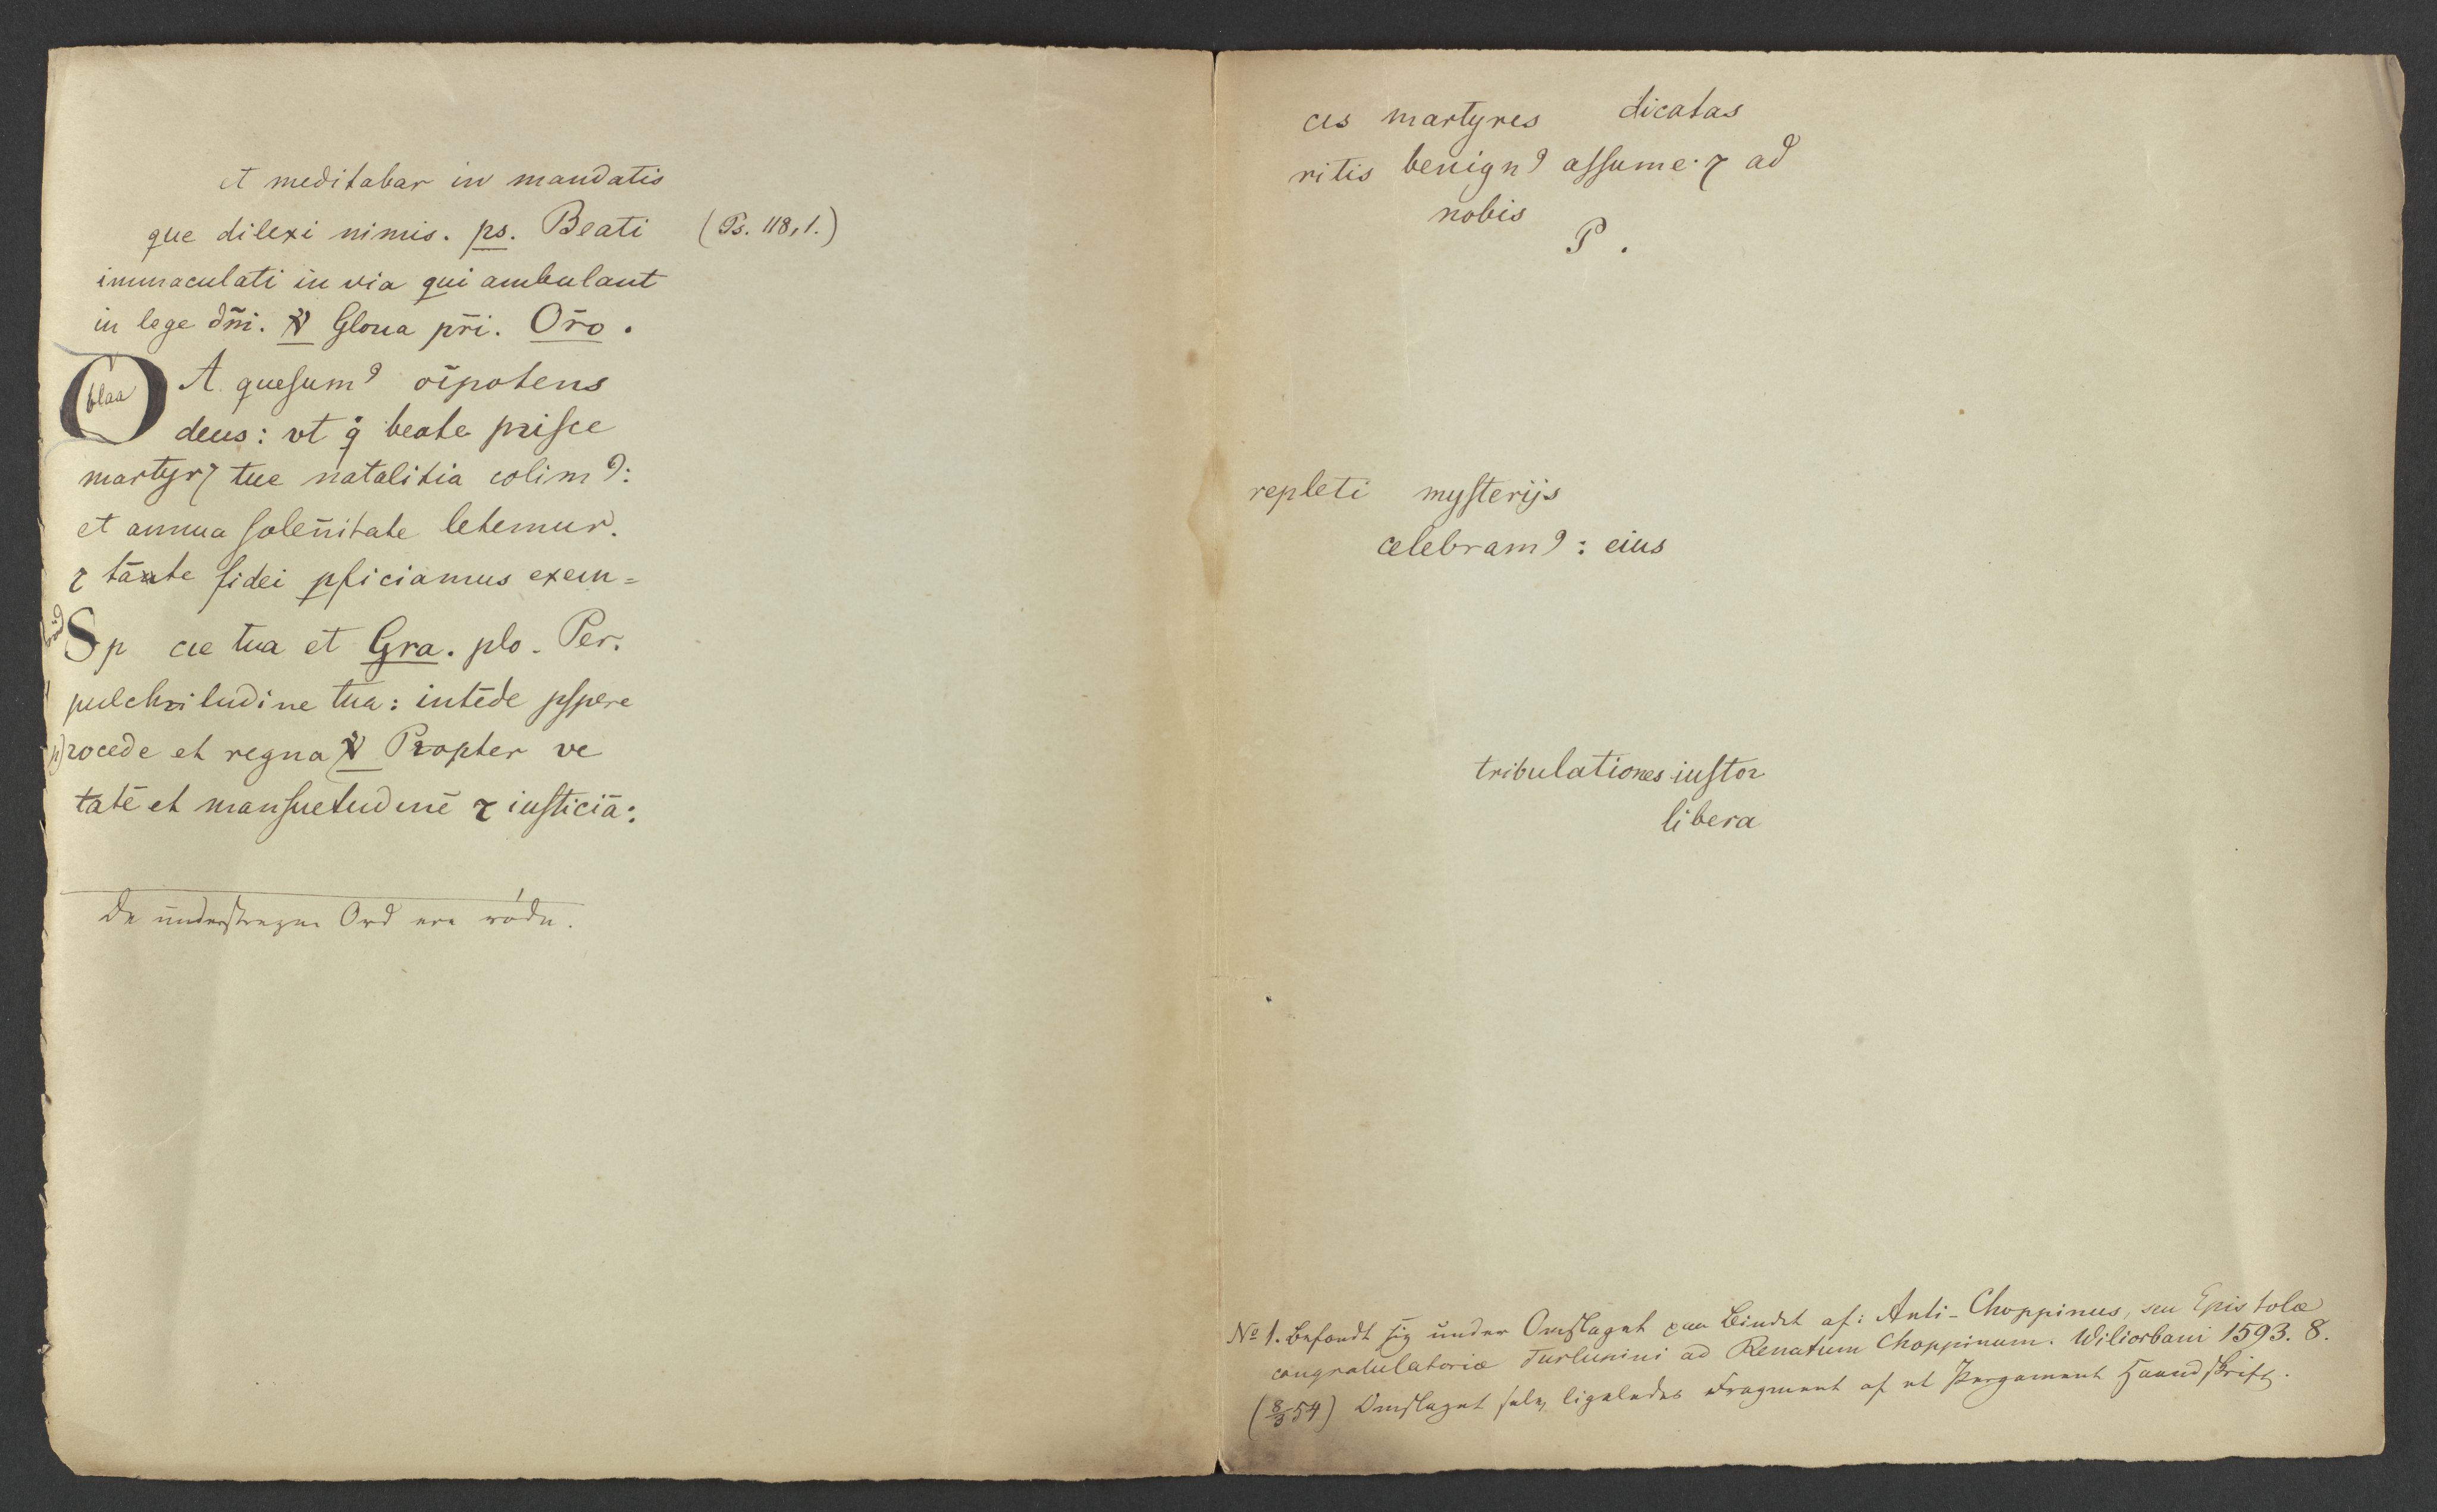 et meditabar in mandatis
que dilexi nimis. ps. Beati (Ps. 118, 1.)
immaculati in via qui ambulant
in lege dn̄i. ℣ Gloria pr̄i. Or̄o.
blaa
DA quesumꝰ oīpotens
deus: vt q̇ beate prisce
martyrꝭ tue natalitia colimꝰ:
et annua solen̄itate letemur.
⁊ tāte fidei ꝑficiamus exem=
Sp cie tua et Gra. plo. Per.
pulchritudine tua: intēde ꝓspere
procede et regna ℣ Propter ve
tatē et mansuetudinē ⁊ iusticiā:
De understregne Ord ere røde.
ces martyres dicatas
ritis benignꝰ assume· ⁊ ad
nobis
P .
repleti mysterijs
celebramꝰ: eius
tribulationes iustoꝝ
libera
No 1. Befandt sig under Omslaget paa Bindet af: Anti-Choppinus, seu Epistola
congratulatoria Turlupini ad Renatum Choppinum. Wiliorbani 1593. 8.
(8/3 54) Omslaget selv ligeledes Fragment af et Pergament Haandskrift.